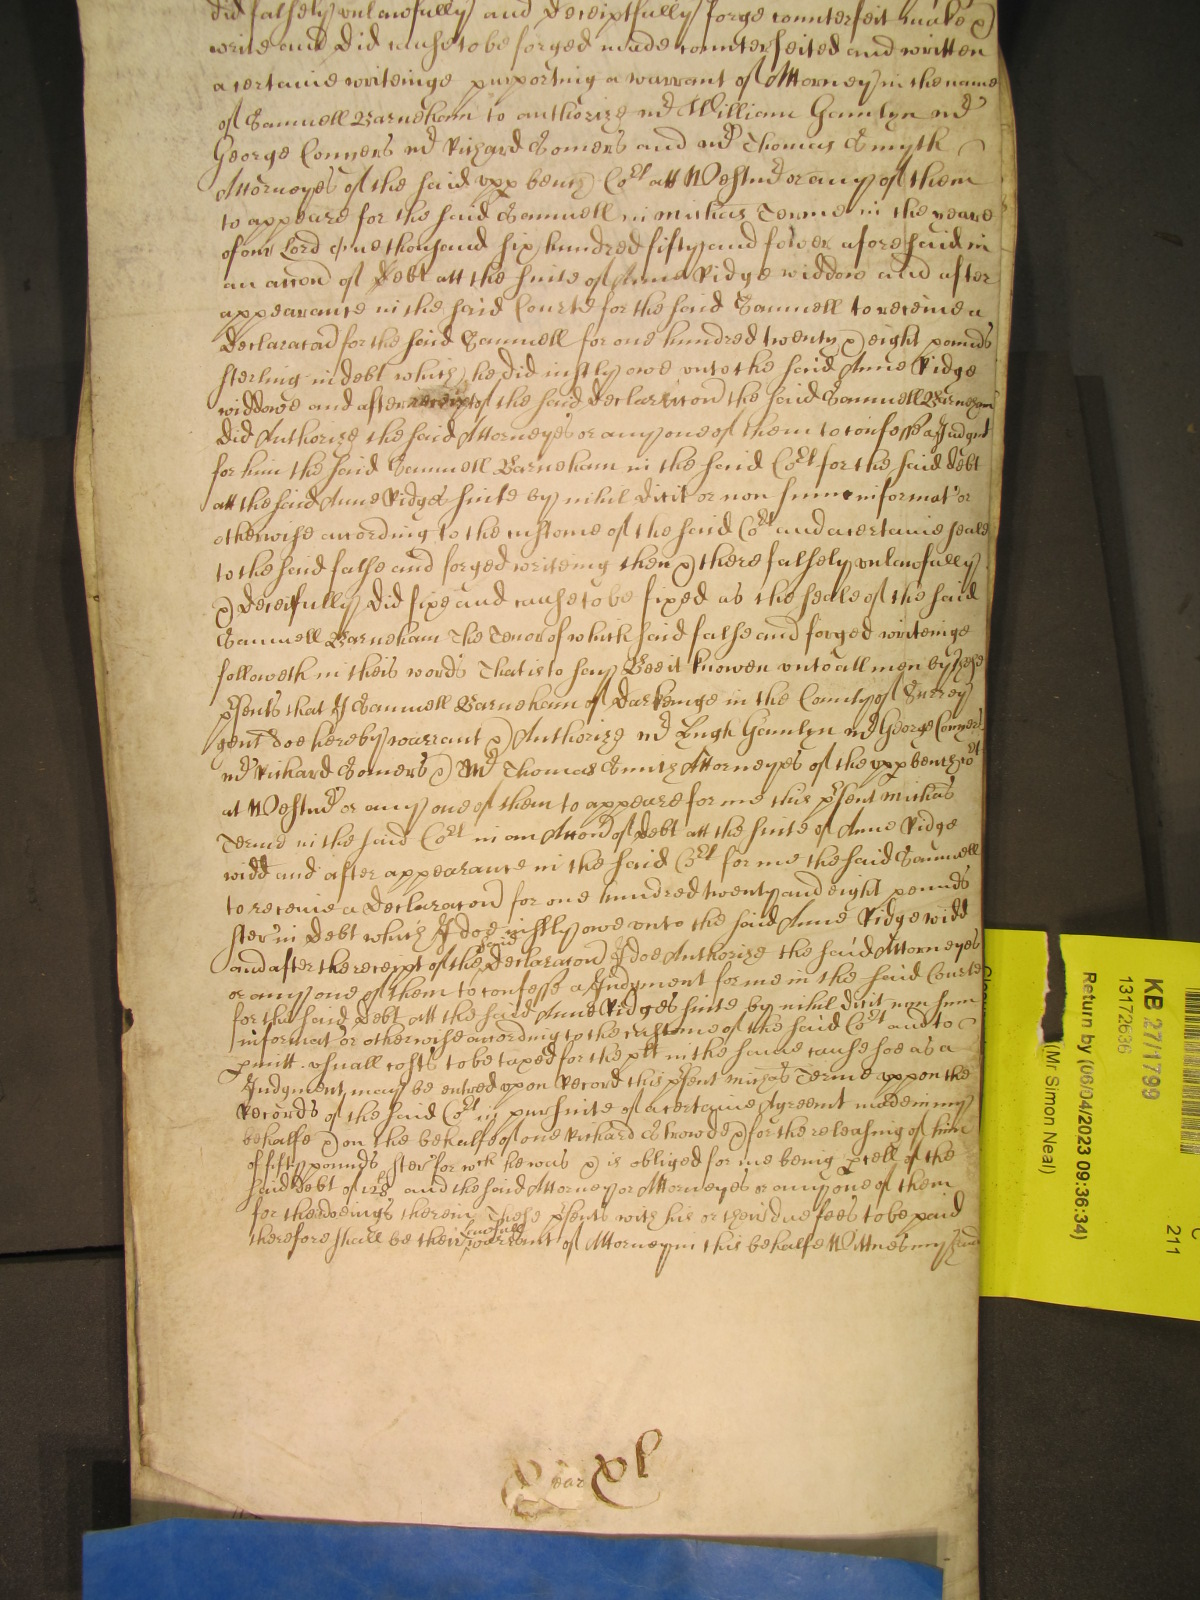 did falsely unlawfully and deceiptfully forge counterfeit make &
write and did cause to be forged made counterfeited and written
a certaine writeinge purporting a warrant of Attorney in the name
of Samuell Barneham to authorize Mr William Gamlyn Mr
George Conners Mr Richard Somers and Mr Thomas Smyth
Attorneyes of the said upp bench Cort att Westmr or any of them
to appeare for the said Samuell in Michas Terme in the yeare
of our Lord one thousand six hundred fifty and fower aforesaid in
an accon of debt att the suite of Anne Ridge widdow and after
appearance in the said Courte for the said Samuell to receive a
Declaracon for the said Samuell for one hundred twenty & eight pounds
sterling in debt which he did justly owe unto the said Anne Ridge
widdowe and after receipt of the said declaracon the said Samuell Barneham
did Authorize the said Attorneyes or any one of them to confesse a Judgmt
for him the said Samuell Barneham in the said Cort for the said debt
att the said Anne Ridges suite by nihil dicit or non sum informat or
otherwise according to the custome of the said Cort and a certaine seale
to the said false and forged writeing then & there falsely unlawfully
& deceiptfully did fixe and cause to be fixed as the seale of the said
Samuell Barneham The Tenor of which said false and forged writeinge
followeth in theis words That is to say Bee it knowen unto all men by these
psents that I Samuell Barneham of Darkeinge in the County of Surrey
gent doe hereby warrant & Authorize Mr Hugh Gamlyn Mr George Conners
Mr Richard Somers & Mr Thomas Smith Attorneyes of the upp bench Cort
at Westmr or any one of them to appeare for me this psent Michas
Terme in the said Cort in an Accon of debt att the suite of Anne Ridge
widd and after appearance in the said Cort for me the said Samuell
to receive a Declaracon for one hundred twenty and eight pounds
ster in debt which I doe justly owe unto the said Anne Ridge widd
and after the receipt of the said Declaracon I doe Authorize the said Attorneyes
or any one of them to confesse a Judgment for me in the said Courte
for the said debt att the said Anne Ridges suite by nihil dicit non sum
informat or otherwise according to the custome of the said Cort and to
pmitt usuall costs to be taxed for the plt in the same cause soe as a
Judgment may be entred upon Record this psent Michas Terme uppon the
Records of the said Cort in pursuite of a certaine Agreemt made in my
behalfe & on the behalfe of one Richard & for the releasing of him
of fifty pounds ster for wch he was & is obliged for me being pcell of the
said debt of 128l and the said Attorney or Attorneyes or any one of them
for the doeings therein These psents with his or their due fees to be paid
therefore shall be their lawfull warrant of Attorney in this behalfe Wittnes my hand
KB 27/1799
13172636
Return by (06/04/2023 09:36:34)
(Mr Simon Neal)
211